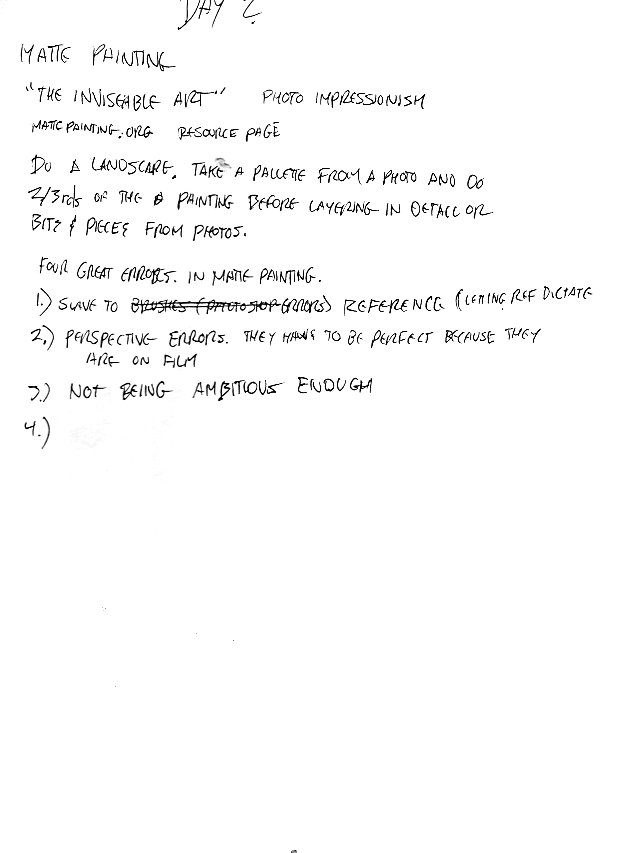 DAY 2
MATTE PAINTING
"THE INVISEABLE ART" PHOTO IMPRESSIONISM
MATTEPAINTING.ORG RESOURCE PAGE
DO A LANDSCAPE. TAKE A PALLETTE FROM A PHOTO AND DO
2/3rds OF THE PAINTING BEFORE LAYERING IN DETAIL OR
BITS & PIECES FROM PHOTOS.
FOUR GREAT ERRORS. IN MATTE PAINTING.
1.) SLAVE TO BRUSHES (PHOTOSHOP ERRORS) REFERENCE (LETTING REF DICTATE
2.) PERSPECTIVE ERRORS. THEY HAVE TO BE PERFECT BECAUSE THEY
ARE ON FILM
3.) NOT BEING AMBITIOUS ENOUGH
4.)